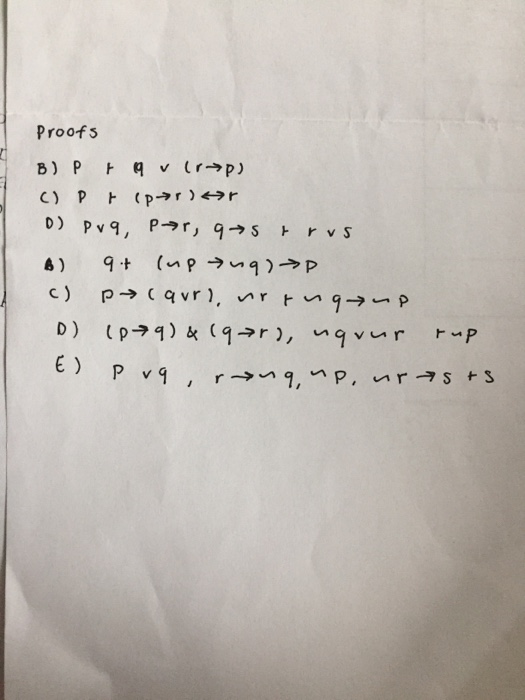 Proofs
B) P ⊢ q ∨ (r→p)
C) P ⊢ (p→r)↔r
D) p∨q, P→r, q→s ⊢ r∨s
B) q⊢ (~p →~q)→p
C) p→(q∨r), ~r ⊢ ~q→~p
D) (p→q) & (q→r), ~q∨~r ⊢~p
E) p ∨q , r→~q, ~p, ~r→s ⊢s